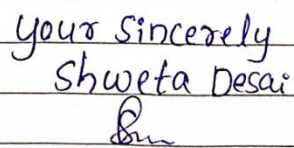 your Sincerely
Shweta Desai